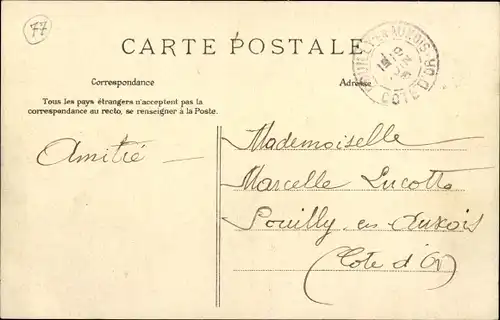 77
CARTE POSTALE
POUILLY-EN-AUXOIS
COTE D'OR
Correspondance
Adresse
Tous les pays étrangers n'acceptent pas la
correspondance au recto, se renseigner à la Poste.
Amitié —
Mademoiselle
Marcelle Lucotte
Pouilly en Auxois
(Cote d'Or)